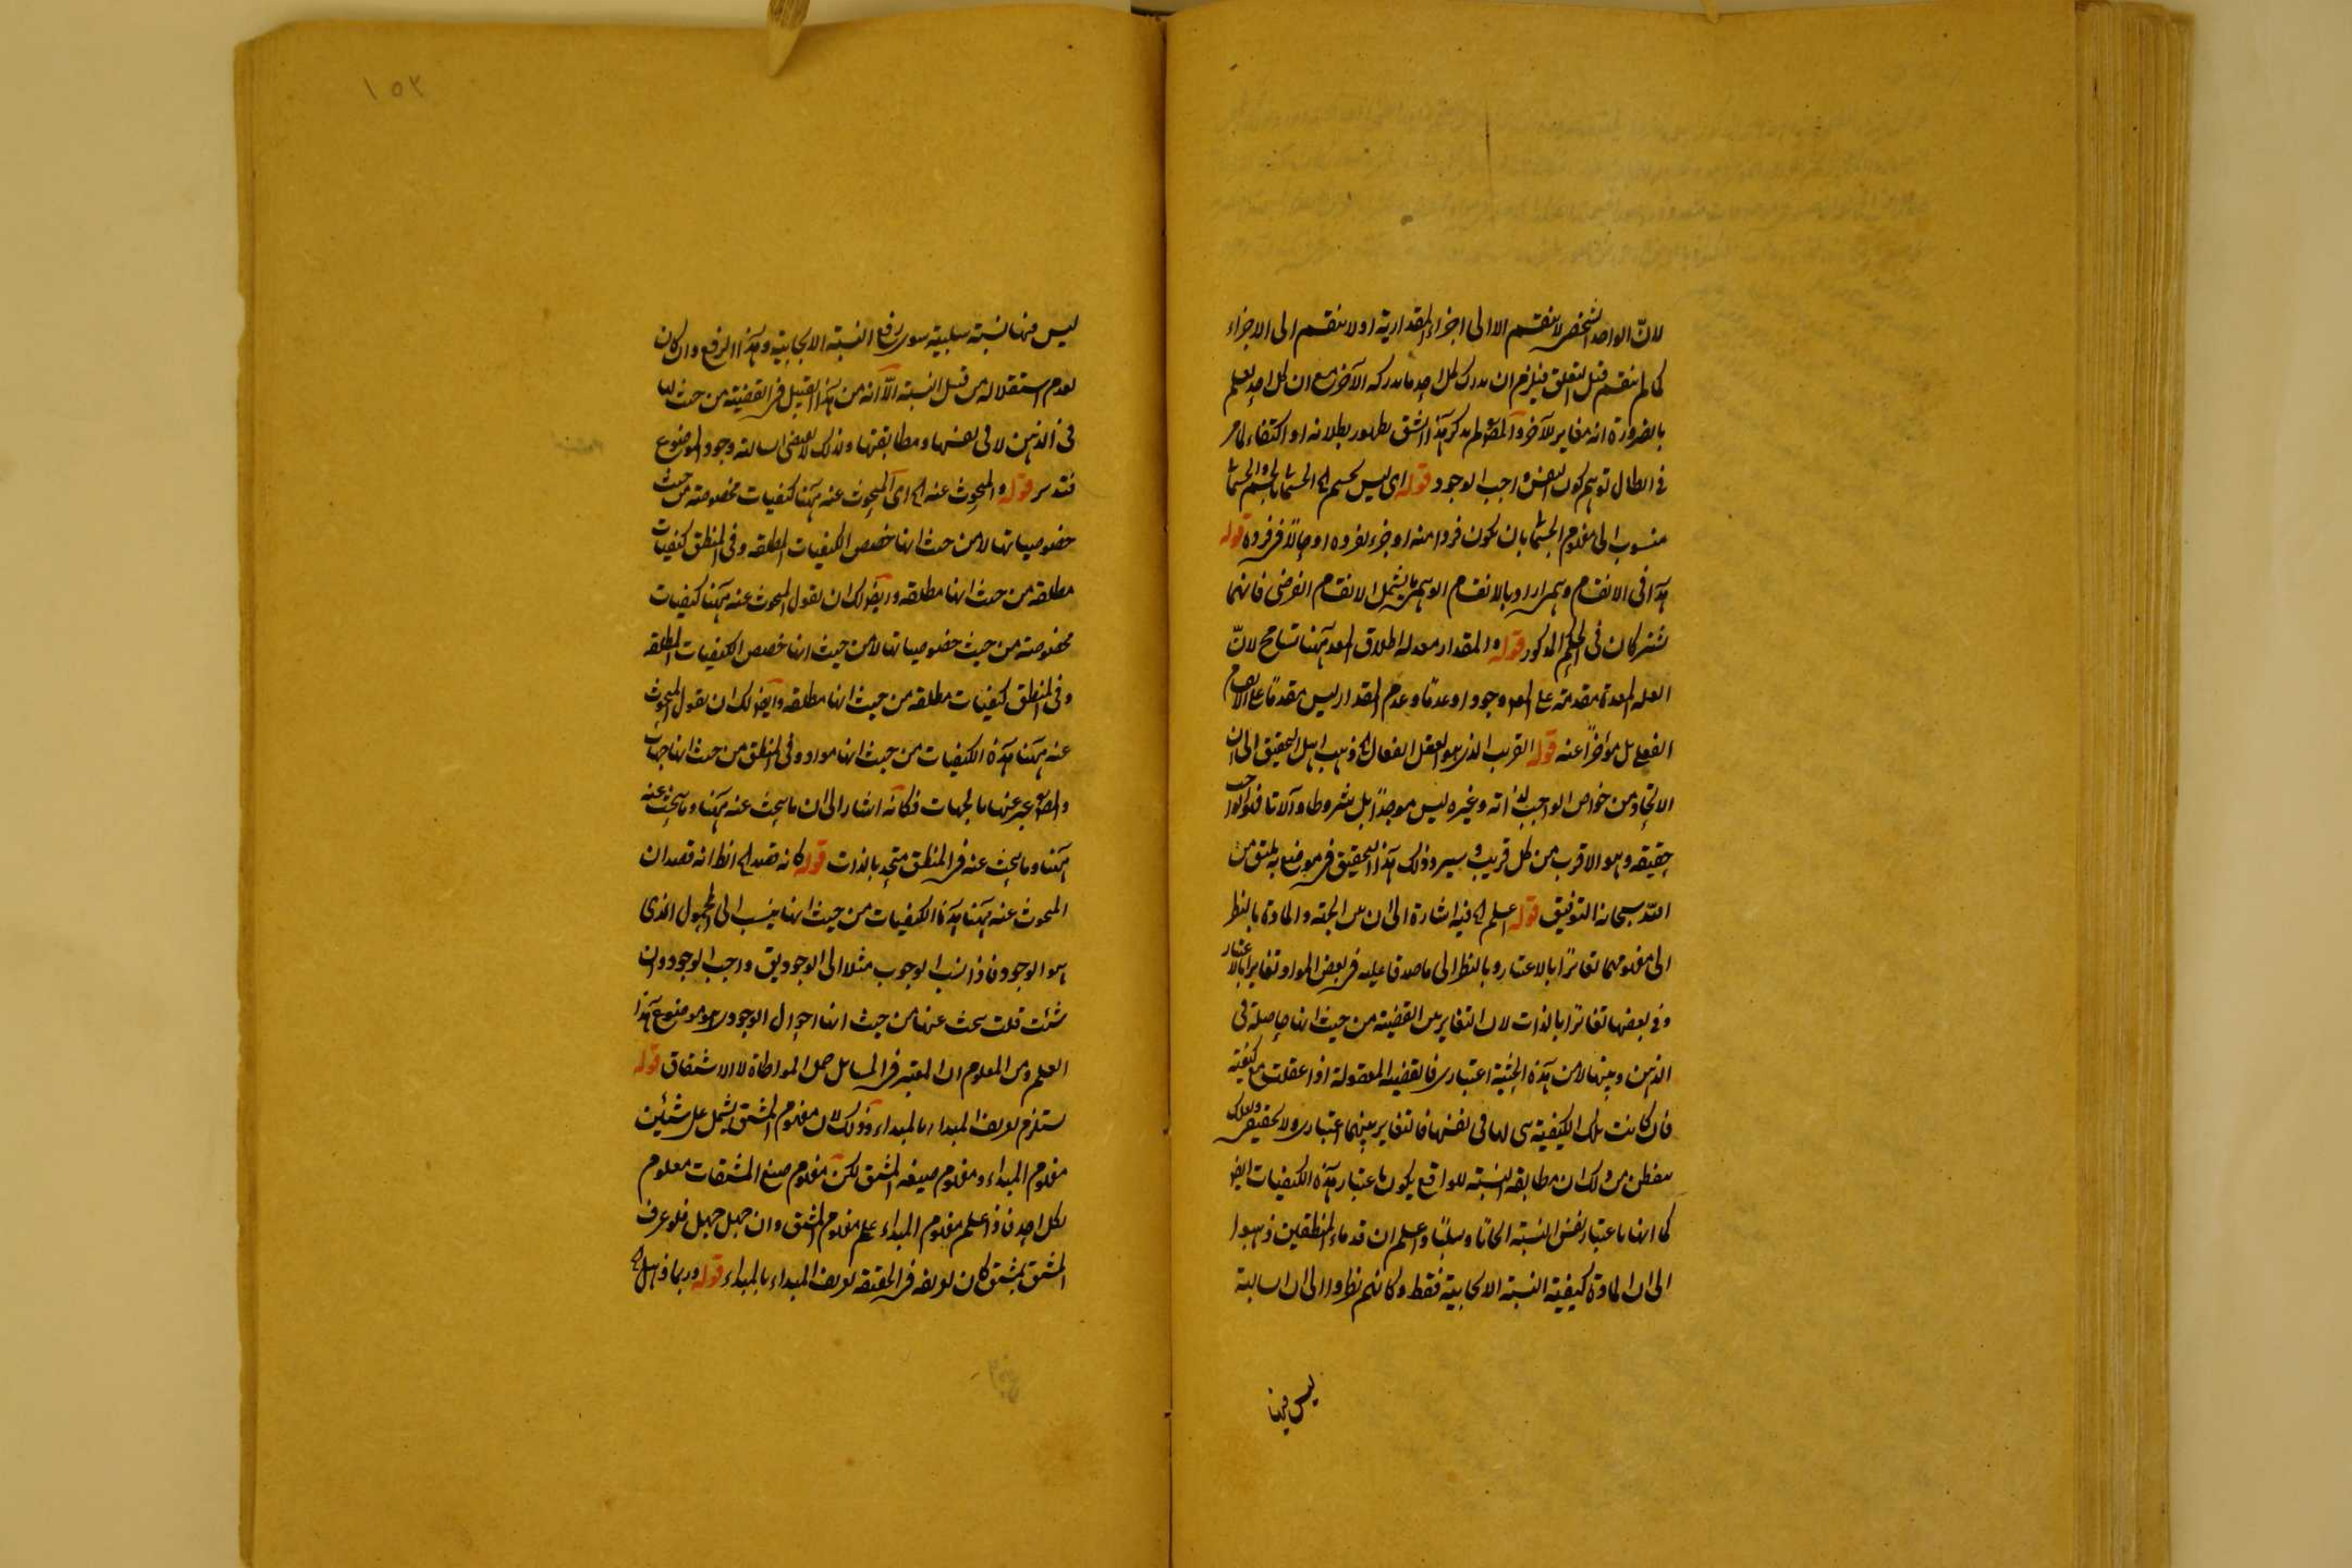 لانّ الواحد الشخصى لا ينقسم الا الى اجزاء المقدارية او لا ينقسم الى الاجزاء
كما لم ينقسم قبل التعلق فيلزم ان يدرك كل احد ما يدركه الآخر مع ان كل احد يعلم
بالضرورة انه مغاير للآخر والمصّ لم يذكر هذا الشق لظهور بطلانه او اكتفاء لما مر
فى ابطال توهم كون النفس واجب الوجود قوله اى ليس بجسم الخ
منسوب الى مفهوم بان يكون فردا منه او جزء لفرده او حالّا فى فرده قوله
هذا فى الانقسام الوهمى اراد بالانقسام الوهمى ما يشمل الانقسام الفرضى فانهما
مشتركان فى الحكم المذكور قوله والمقدار معد له اطلاق المعد ههنا تسامح لانّ
العله المعدة مقدمة على المعد وجودا وعدمًا وعدم المقدار ليس مقدمًا على الانقسام
الفعلى بل مؤخرًا عنه قوله القريب الذى هو العقل الفعال الخ ذهب اهل التحقيق الى ان
الايجاد من خواص الواجب لذاته وغيره ليس موجدًا بل شروطا وآلات فهو الواجب
حقيقه وهو الاقرب من كل قريب وسيرد ذلك هذا التحقيق فى موضع يليق من
اللّه سبحانه التوفيق قوله اعلم الخ فيه اشارة الى ان بين الجهة والمادة بالنظر
الى مفهومهما تغايرًا بالاعتبار وبالنظر الى ما صدقا عليه فى بعض المواد تغايرا بالاعتبار
وفى بعضها تغايرا بالذات لان التغاير بين القضية من حيث انها حاصلة فى
الذهن وبينها لا من هذه الحيثية اعتبارى فالقضيه المعقولة اذا عقلت مع كيفية
فان كانت تلك الكيفية هى لها فى نفسها فالتغاير بينهما اعتبارى والا فحقيقى ولعلك
تتفطن من ذلك ان مطابقه النسبة للواقع يكون باعتبار هذه الكيفيات ايضا
كما انها باعتبار نفس النسبة ايجابًا وسلبًا واعلم ان قدماء المنطقيين ذهبوا
الى ان المادة كيفية النسبة الايجابية فقط وكانهم نظروا الى ان السالبة
ليس فيها
١٥٢
ليس فيها نسبة سلبية سوى رفع النسبة الايجابية وهذا الرفع وان كان
لعدم استقلاله من قبيل النسبة الّا انه من هذا القبيل فى القضية من حيث انها
فى الذهن لا فى نفسها ومطابقتها ولذلك لا يقتضى السالبة وجود الموضوع
فتدبر قوله والمبحوث عنه الخ اى المبحوث عنه ههنا كيفيات مخصوصة من حيث
خصوصياتها لا من حيث انها خصص الكيفيات المطلقه وفى المنطق كيفيات
مطلقه من حيث انها مطلقه وايضا لك ان تقول المبحوث عنه ههنا كيفيات
مخصوصة من حيث خصوصياتها لا من حيث انها خصص الكيفيات المطلقه
وفى المنطق كيفيات مطلقه من حيث انها مطلقه وايضا لك ان تقول المبحوث
عنه ههنا هذه الكيفيات من حيث انها مواد وفى المنطق من حيث انها جهات
والمصّ عبر عنها بالجهات فكانّه اشار الى ان ما يبحث عنه ههنا وما يبحث عنه
ههنا وما يبحث عنه فى المنطق متحد بالذات قوله كانه قصد الخ الظ انه قصد ان
المبحوث عنه ههنا هذه الكيفيات من حيث انها ينسب الى المحمول الذى
هو الوجود فاذا نسب الوجوب مثلا الى الوجود يق واجب الوجود وان
شئت قلت يبحث عنها من حيث انها احوال الوجود وهو موضوع هذا
العلم ومن المعلوم ان المعتبر فى المسائل حمل المواطاة لا الاشتقاق قوله
يستلزم تعريف المبداء بالمبداء وذلك لان مفهوم المشتق يشمل على شيئين
مفهوم المبداء ومفهوم صيغه المشتق لكن مفهوم صيغ المشتقات معلوم
لكل احد فاذا علم مفهوم المبداء علم مفهوم المشتق وان جهل جهل فلو عرف
المشتق بمشتق كان تعريفه فى الحقيقه تعريف المبداء بالمبداء قوله وربما